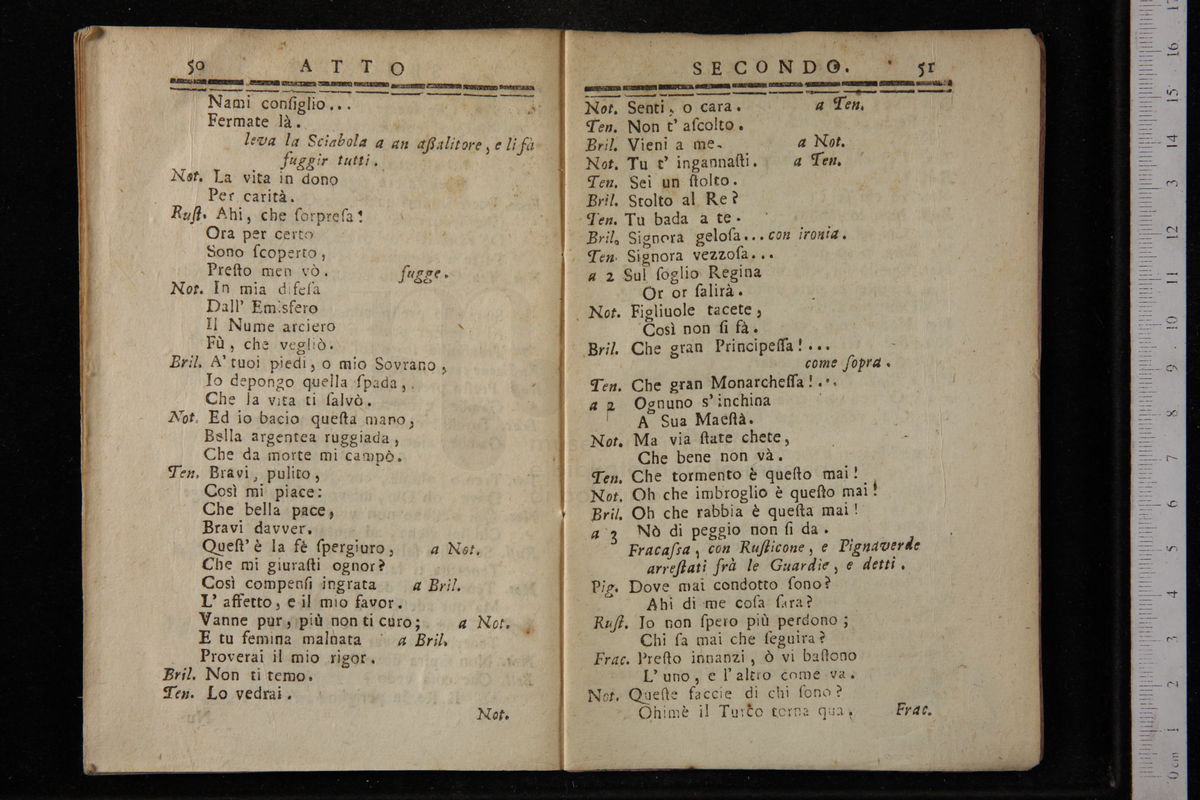 50 ATTO
Nami conſiglio...
Fermate là.
leva la Sciabola a un aſſalitore, e li fà
fuggir tutti.
Not. La vita in dono
Per carità.
Ruſt. Ahi, che ſorpreſa!
Ora per certo
Sono ſcoperto,
Preſto men vò. fugge.
Not. In mia difeſa
Dall' Emisfero
Il Nume arciero
Fù, che vegliò.
Bril. A' tuoi piedi, o mio Sovrano,
Io depongo quella ſpada,
Che la vita ti ſalvò.
Not. Ed io bacio queſta mano,
Bella argentea ruggiada,
Che da morte mi campò.
Ten. Bravi, pulito,
Così mi piace:
Che bella pace,
Bravi davver.
Queſt' è la fè ſpergiuro, a Not.
Che mi giuraſti ognor?
Così compenſi ingrata a Bril.
L' affetto, e il mio favor.
Vanne pur, più non ti curo; a Not.
E tu femina malnata a Bril.
Proverai il mio rigor.
Bril. Non ti temo.
Ten. Lo vedrai.
Not.
SECONDO. 51
Not. Senti, o cara. a Ten.
Ten. Non t' aſcolto.
Bril. Vieni a me. a Not.
Not. Tu t' ingannaſti. a Ten.
Ten. Sei un ſtolto.
Bril. Stolto al Re?
Ten. Tu bada a te.
Bril. Signora geloſa... con ironia.
Ten. Signora vezzoſa...
a 2 Sul ſoglio Regina
Or or ſalirà.
Not. Figliuole tacete,
Così non ſi fà.
Bril. Che gran Principeſſa!...
come ſopra.
Ten. Che gran Monarcheſſa!...
a 2 Ognuno s' inchina
A Sua Maeſtà.
Not. Ma via ſtate chete,
Che bene non và.
Ten. Che tormento è queſto mai!
Not. Oh che imbroglio è queſto mai!
Bril. Oh che rabbia è queſta mai!
a 3 Nò di peggio non ſi da.
Fracaſſa, con Ruſticone, e Pignaverde
arreſtati frà le Guardie, e detti.
Pig. Dove mai condotto ſono?
Ahi di me coſa ſara?
Ruſt. Io non ſpero più perdono;
Chi ſa mai che ſeguira?
Frac. Preſto innanzi, ò vi baſtono
L' uno, e l' altro come va.
Not. Queſte faccie di chi ſono?
Ohimè il Turco torna qua. Frac.